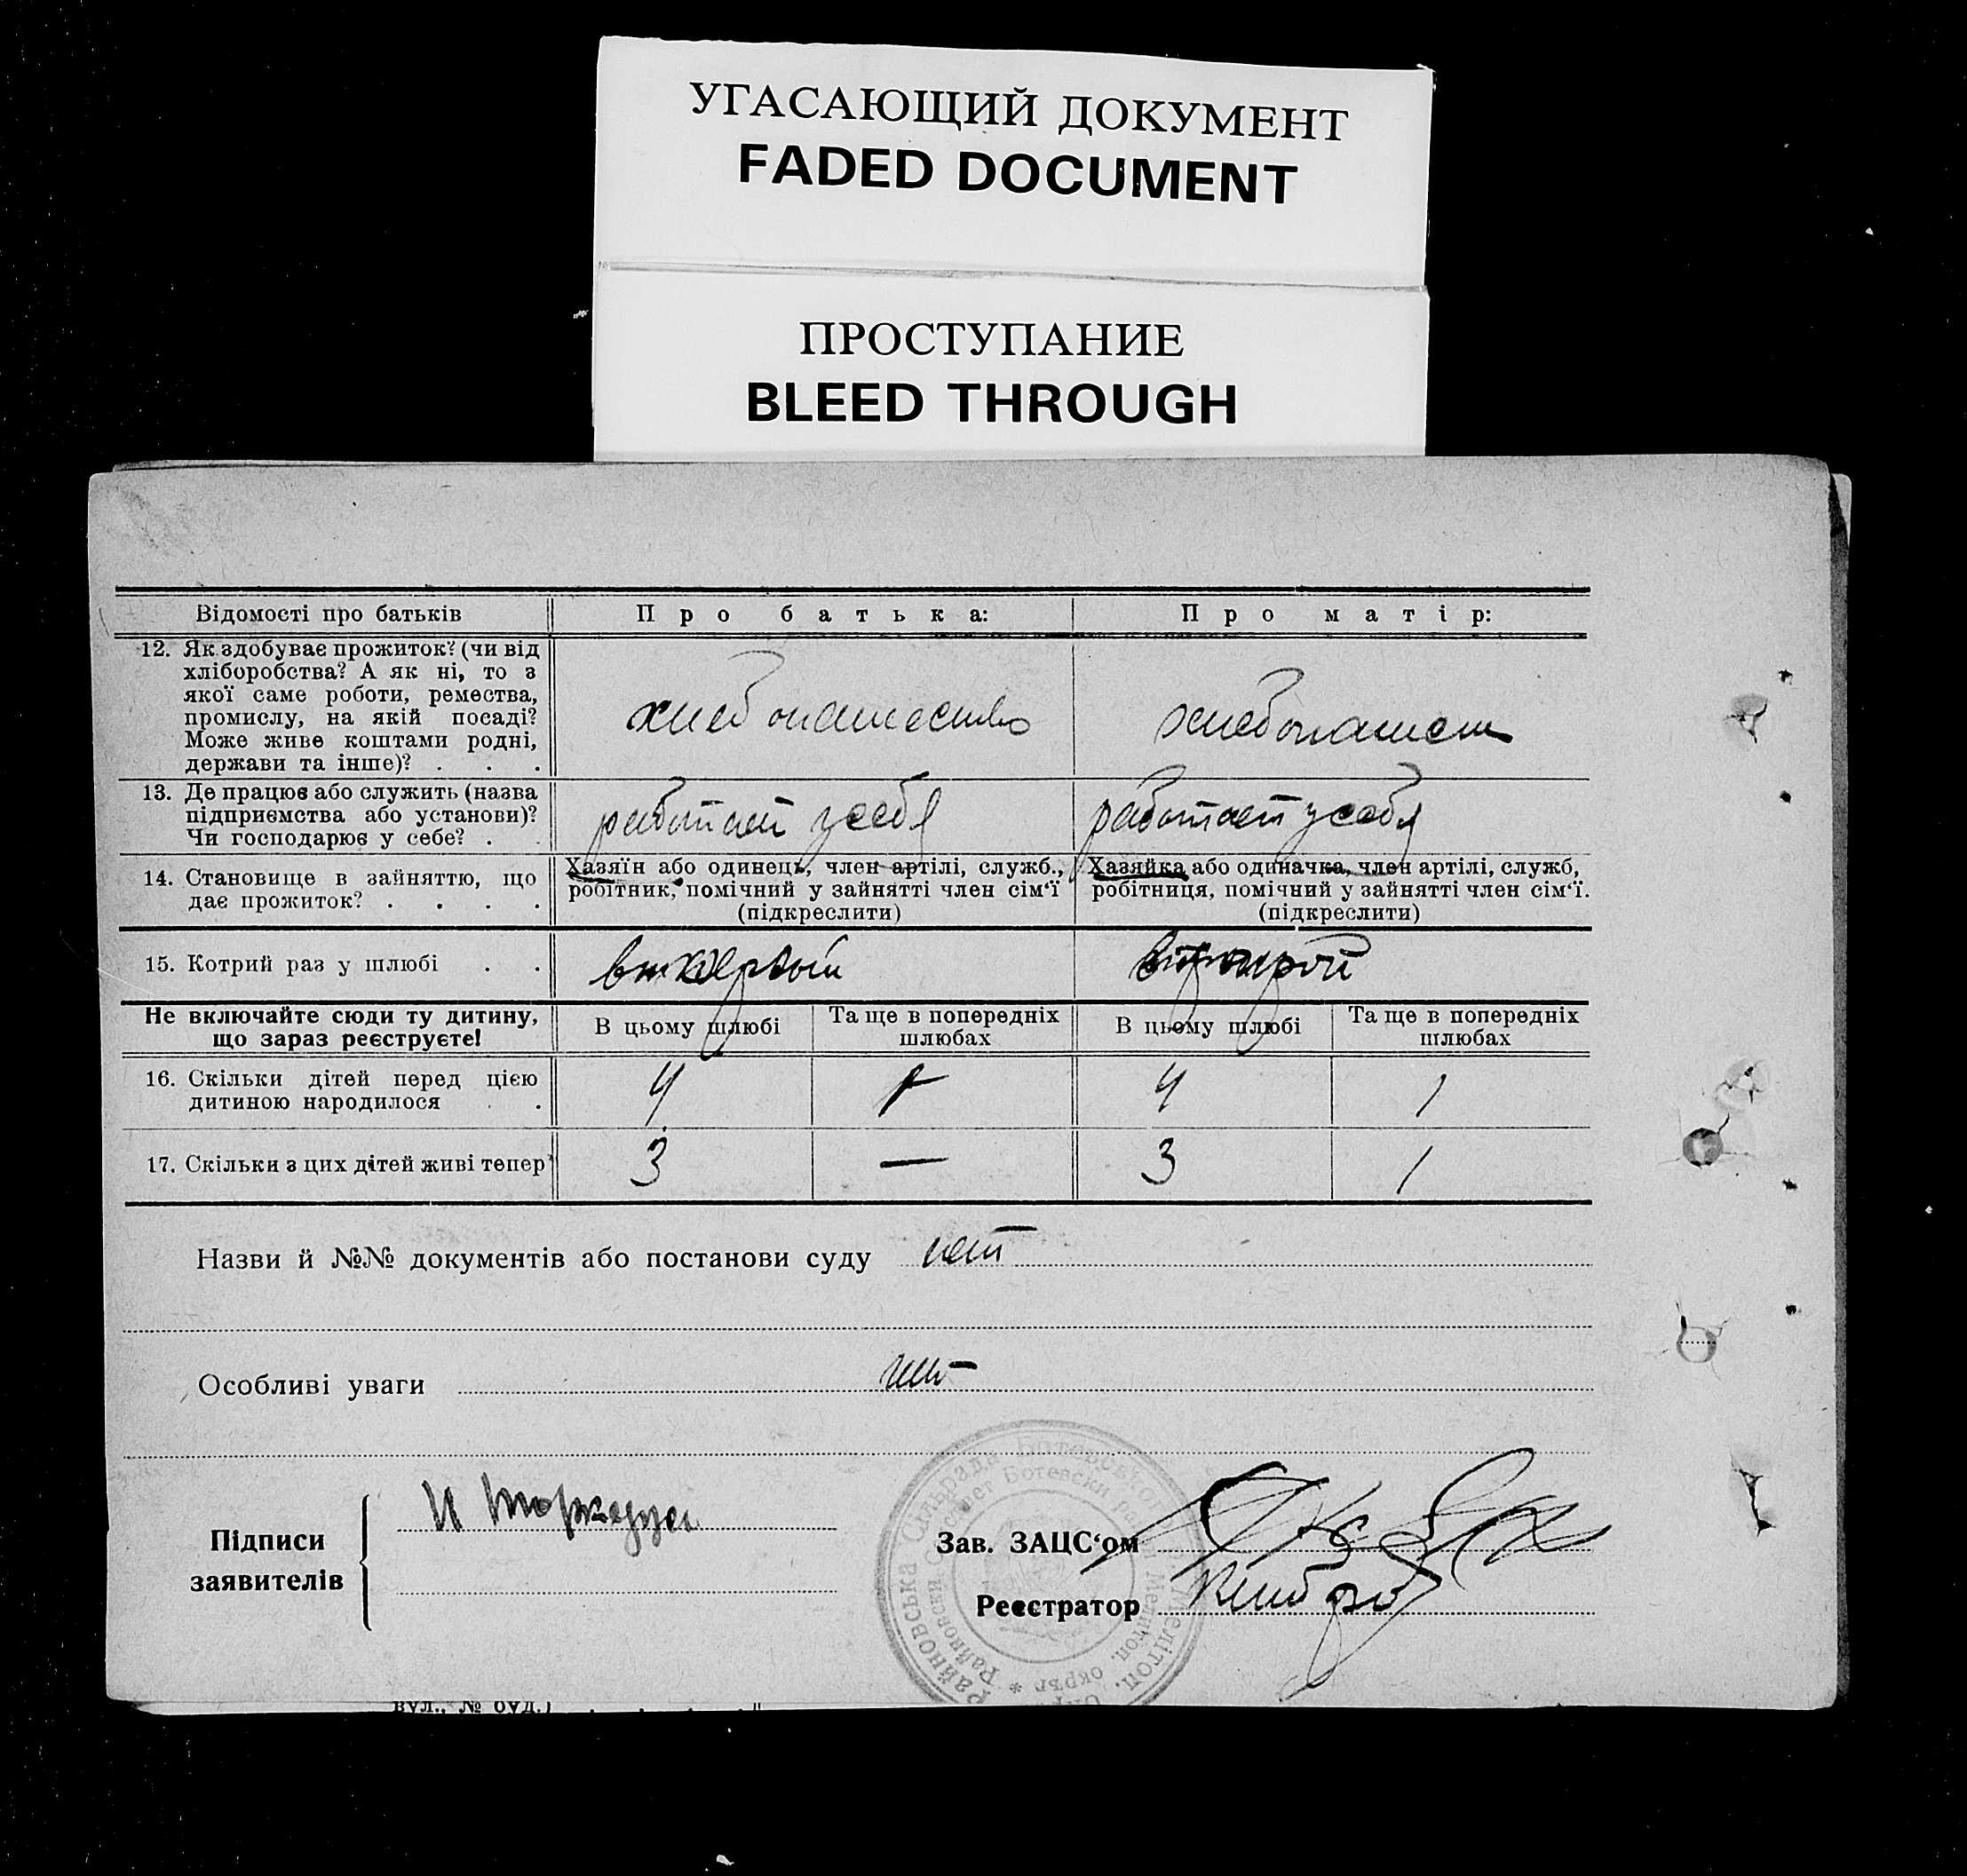 УГАСАЮЩИЙ ДОКУМЕНТ
FADED DOCUMENT
ПРОСТУПАНИЕ
BLEED THROUGH
Відомості про батьків
Про батька:
Про матір:
12. Як здобуває прожиток? (чи від
хліборобства? А як ні, то з
якої саме роботи, ремества,
промислу, на якій посаді?
Може живе коштами родні,
держави та інше)? . . .
хлебопашество
хлебопашест
13. Де працює або служить (назва
підприємства або установи)?
Чи господарює у себе? . .
работает у себя
работает у себя
14. Становище в зайняттю, що
дає прожиток? . . . .
Хазяїн або одинець, член артілі, служб.,
робітник, помічний у зайнятті член сім‘ї
(підкреслити)
Хазяйка або одиначка, член артілі, служб,
робітниця, помічний у зайнятті член сім‘ї.
(підкреслити)
15. Котрий раз у шлюбі . .
Не включайте сюди ту дитину,
що зараз реєструєте!
В цьому шлюбі
Та ще в попередніх
шлюбах
В цьому шлюбі
Та ще в попередніх
шлюбах
16. Скільки дітей перед цією
дитиною народилося . .
4
4
1
17. Скільки з цих дітей живі тепер
3
—
3
1
Назви й №№ документів або постанови суду нет
Особливі уваги нет
Підписи
заявителів
Зав. ЗАЦС‘ом
Реєстратор
Райновська Сільрада Ботевського Мелітоп.
Райновски Ботевски Мелитоп. окръг *
вул., № буд.) . . . .